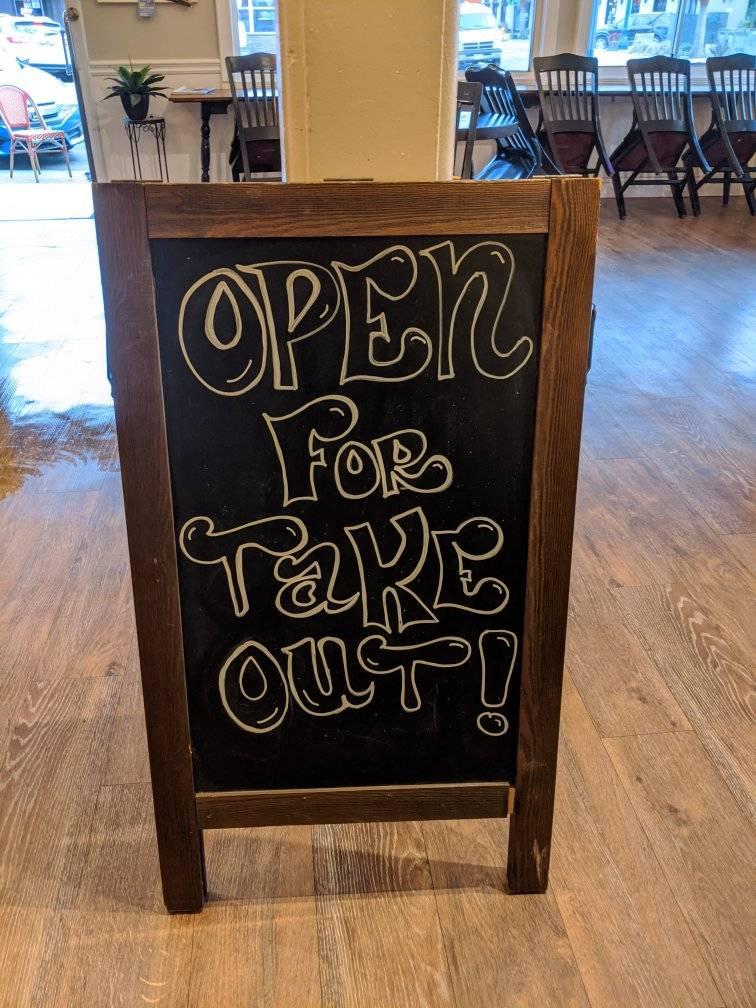 OPEn
FOR
TaKE
OuT!